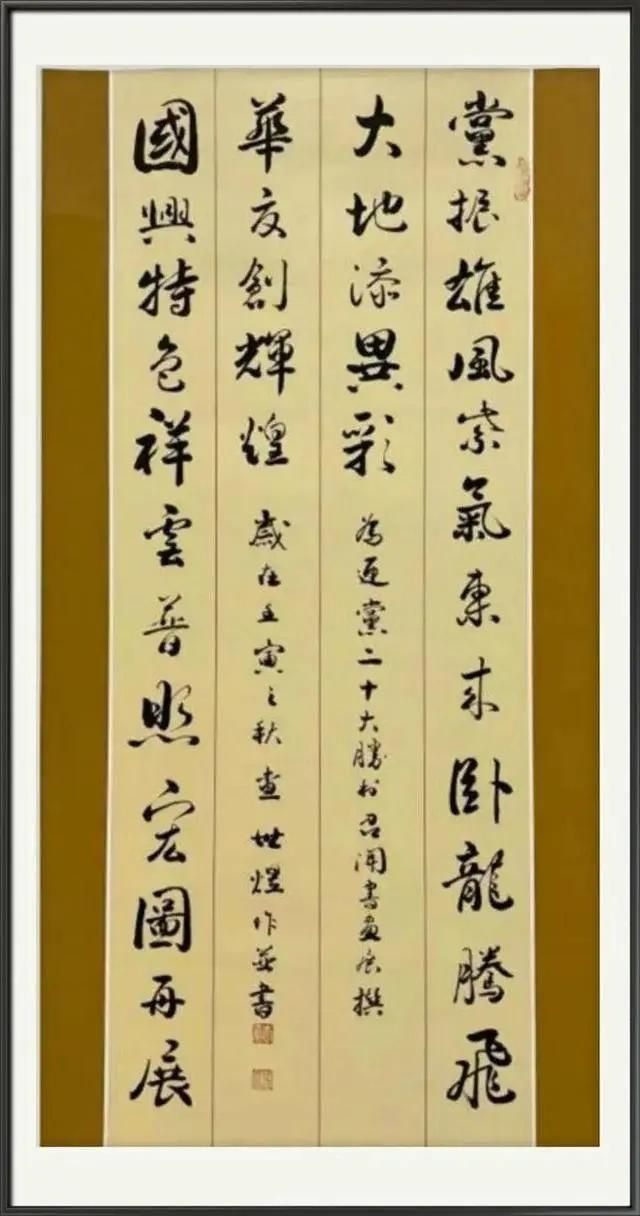 黨振雄風紫氣東來卧龍騰飛
大地添異彩
為迎黨二十大勝利召開書畫展撰
國興特色祥雲普照宏圖再展
華夏創輝煌
歲在壬寅之秋查世煜作並書